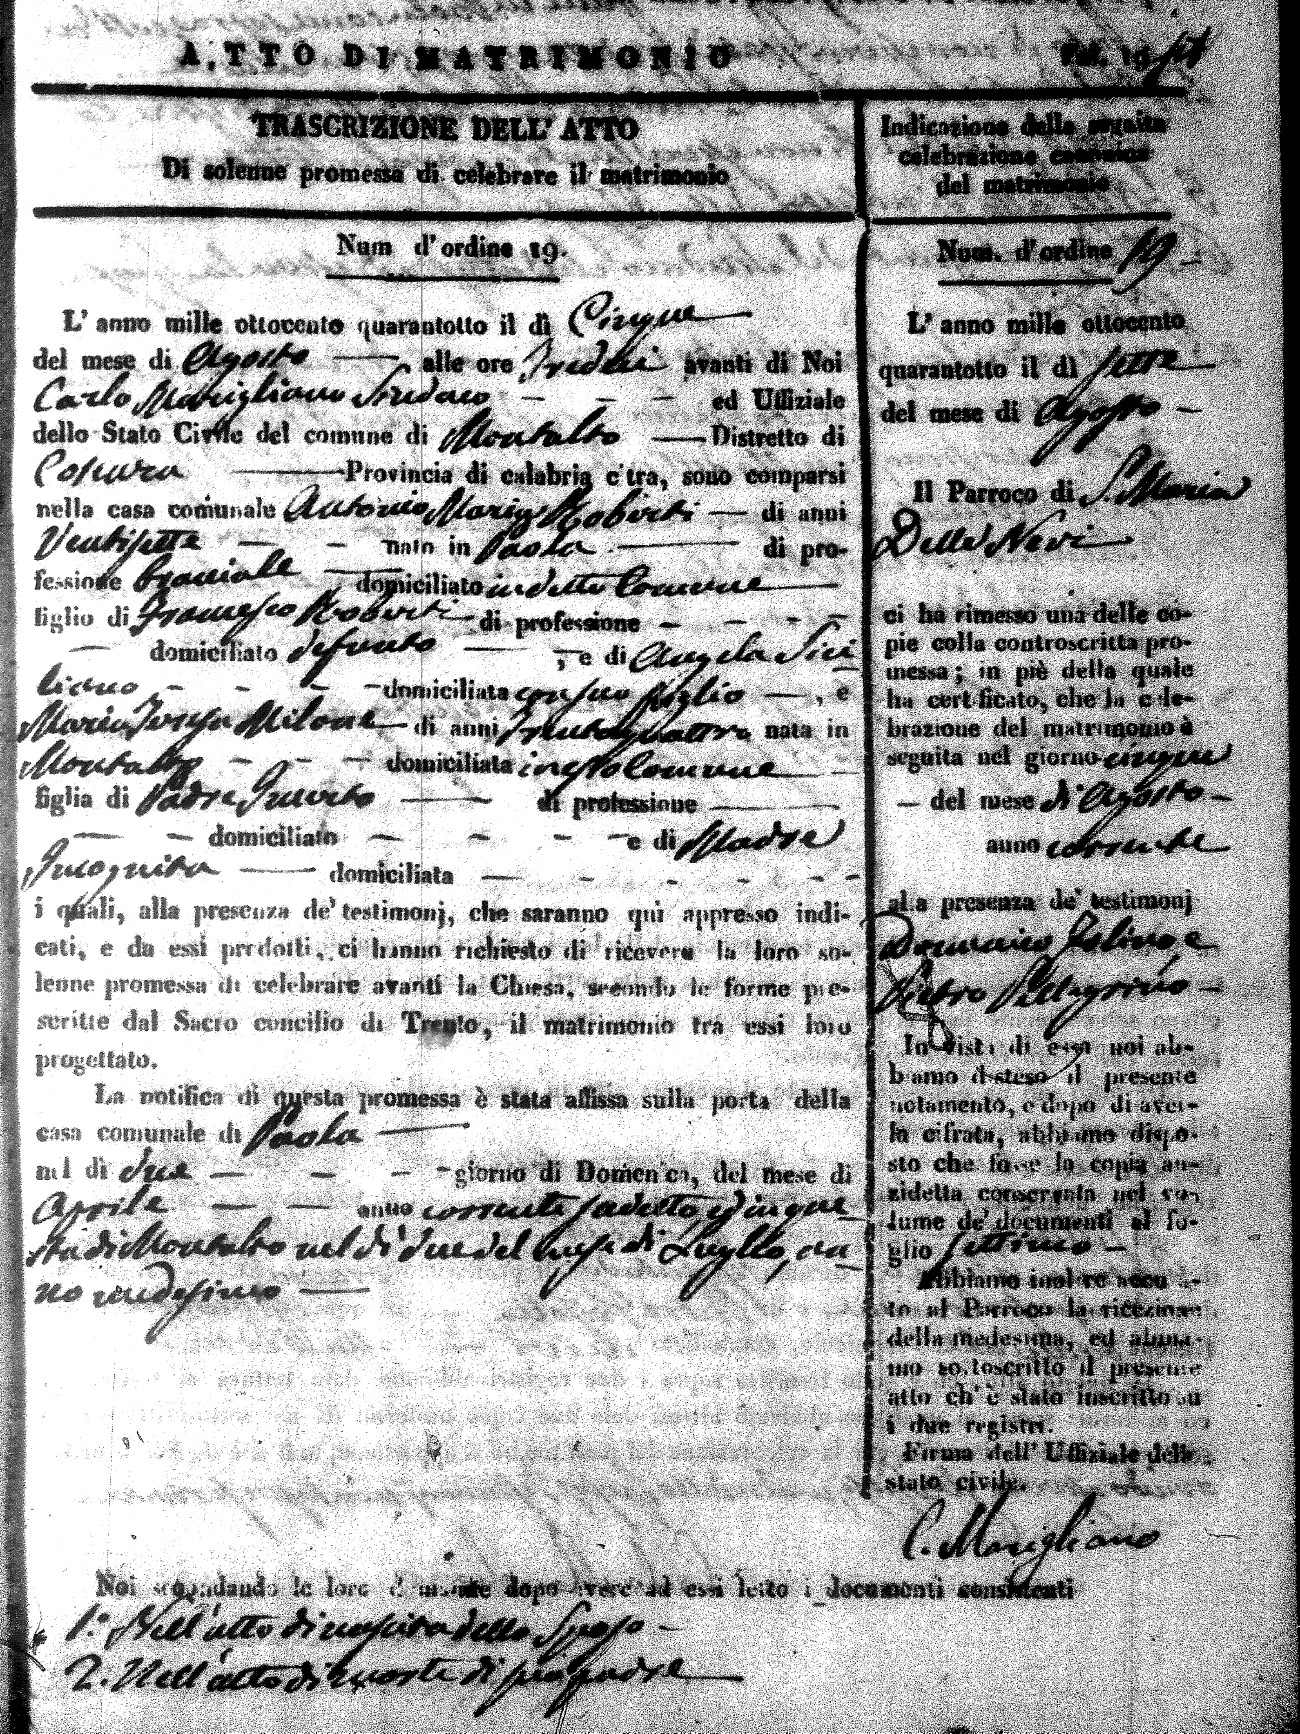 ATTO DI MATRIMONIO
TRASCRIZIONE DELL' ATTO
Di solenne promessa di celebrare il matrimonio
Num d'ordine 19.
L' anno mille ottocento quarantotto il dì Cinque
del mese di Agosto alle ore Tredici avanti di Noi
Carlo Marigliano Sindaco ed Uffiziale
dello Stato Civile del comune di Montalto Distretto di
Cosenza Provincia di calabria citra, sono comparsi
nella casa comunale Antonio Maria Roberti di anni
Ventisette nato in Paola di pro-
fessione bracciale domiciliato in detto Comune
figlio di Francesco Roberti di professione
domiciliato defunto , e di Angela Sici
liano domiciliata con suo figlio , e
Maria Teresa Milone di anni Trentaquattro nata in
Montalto domiciliata in esto Comune
figlia di Padre Incerto di professione
domiciliato e di Madre
Incognita domiciliata
i quali, alla presenza de' testimonj, che saranno qui appresso indi-
cati, e da essi prodotti, ci hanno richiesto di ricevere la loro so-
lenne promessa di celebrare avanti la Chiesa, secondo le forme pre-
scritte dal Sacro concilio di Trento, il matrimonio tra essi loro
progettato.
La notifica di questa promessa è stata affissa sulla porta della
casa comunale di Paola
nel dì due giorno di Domenica, del mese di
Aprile anno corrente
sta di Montalto nel dì due del mese di Luglio, an
no medesimo
Noi secondando le loro dimande dopo avere ad essi letto i documenti consistenti
1.° Nell'atto di nascita dello Sposo
2. Nell'atto di morte di suo padre
Indicazione della seguita
celebrazione canonica
del matrimonio
Num. d'ordine 19
L' anno mille ottocento
quarantotto il dì sette
del mese di Agosto
Il Parroco di S. Maria
Della Nevi
ci ha rimesso una delle co-
pie colla controscritta pro-
messa; in piè della quale
ha certificato, che la cele-
brazione del matrimonio è
seguita nel giorno cinque
del mese di Agosto
anno corrente
alla presenza de' testimonj
Domenico e
Pietro Pellegrino
In vista di essa noi ab-
biamo disteso il presente
notamento, e dopo di aver-
la cifrata, abbiamo dispo-
sto che fosse la copia an-
zidetta conservata nel vo-
lume de' documenti al fo-
glio settimo
Abbiamo inoltre accu-
to al Parroco la ricezione
della medesima, ed abbia-
mo sottoscritto il presente
atto ch' è stato inscritto su
i due registri.
Firma dell' Uffiziale dello
stato civile.
C. Marigliano